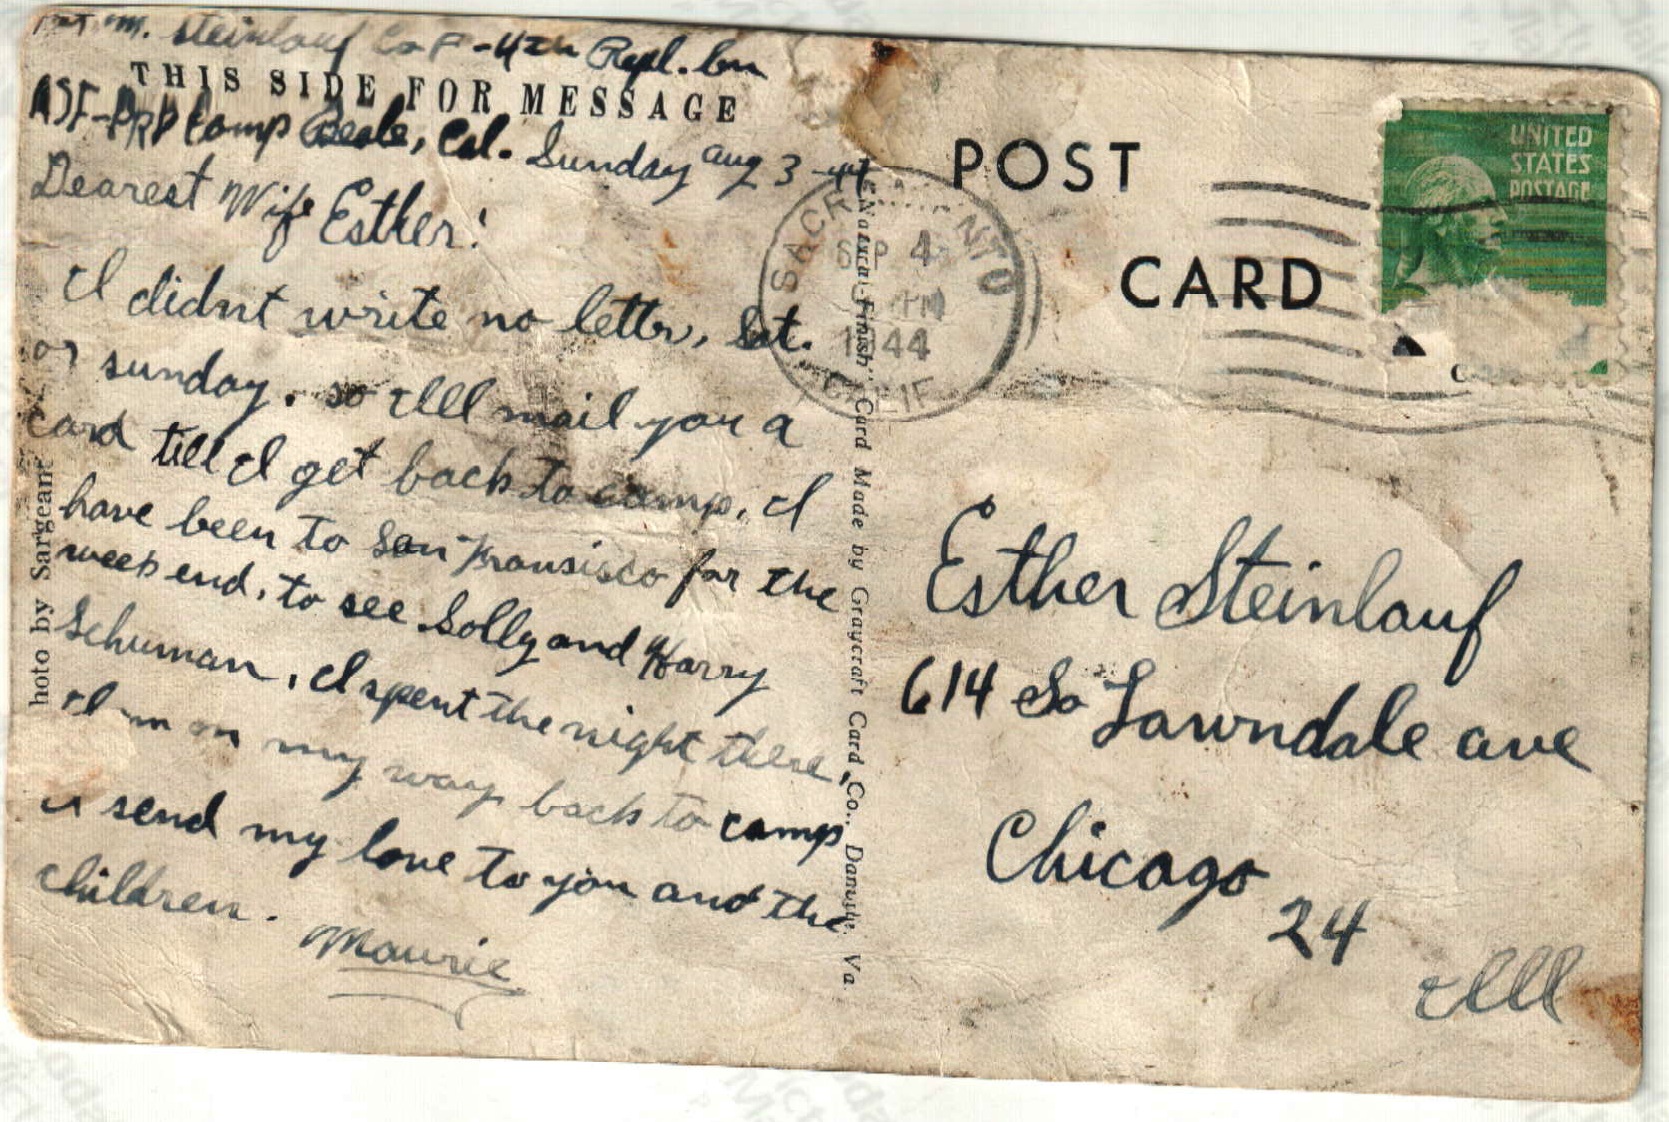 Pvt. M. Steinlauf Co F - 4th Repl. bn
THIS SIDE FOR MESSAGE
ASF-PRD Camp Beale, Cal. Sunday aug 3 - 44
Dearest Wife Esther!
I didnt write no letter, Sat.
or sunday. so Ill mail you a
card till I get back to camp, I
have been to San Fransisco for the
week end, to see Solly and Harry
Schuman, I spent the night there,
I m on my way back to camp
I send my love to you and the
children.
Maurie
hoto by Sargeant
"Natural-Finish" Card Made by Graycraft Card Co., Danville, Va.
POST
CARD
SACRAMENTO
SEP 4
PM
1944
CALIF
UNITED
STATES
POSTAGE
Esther Steinlauf
614 So Lawndale ave
Chicago
24
Ill